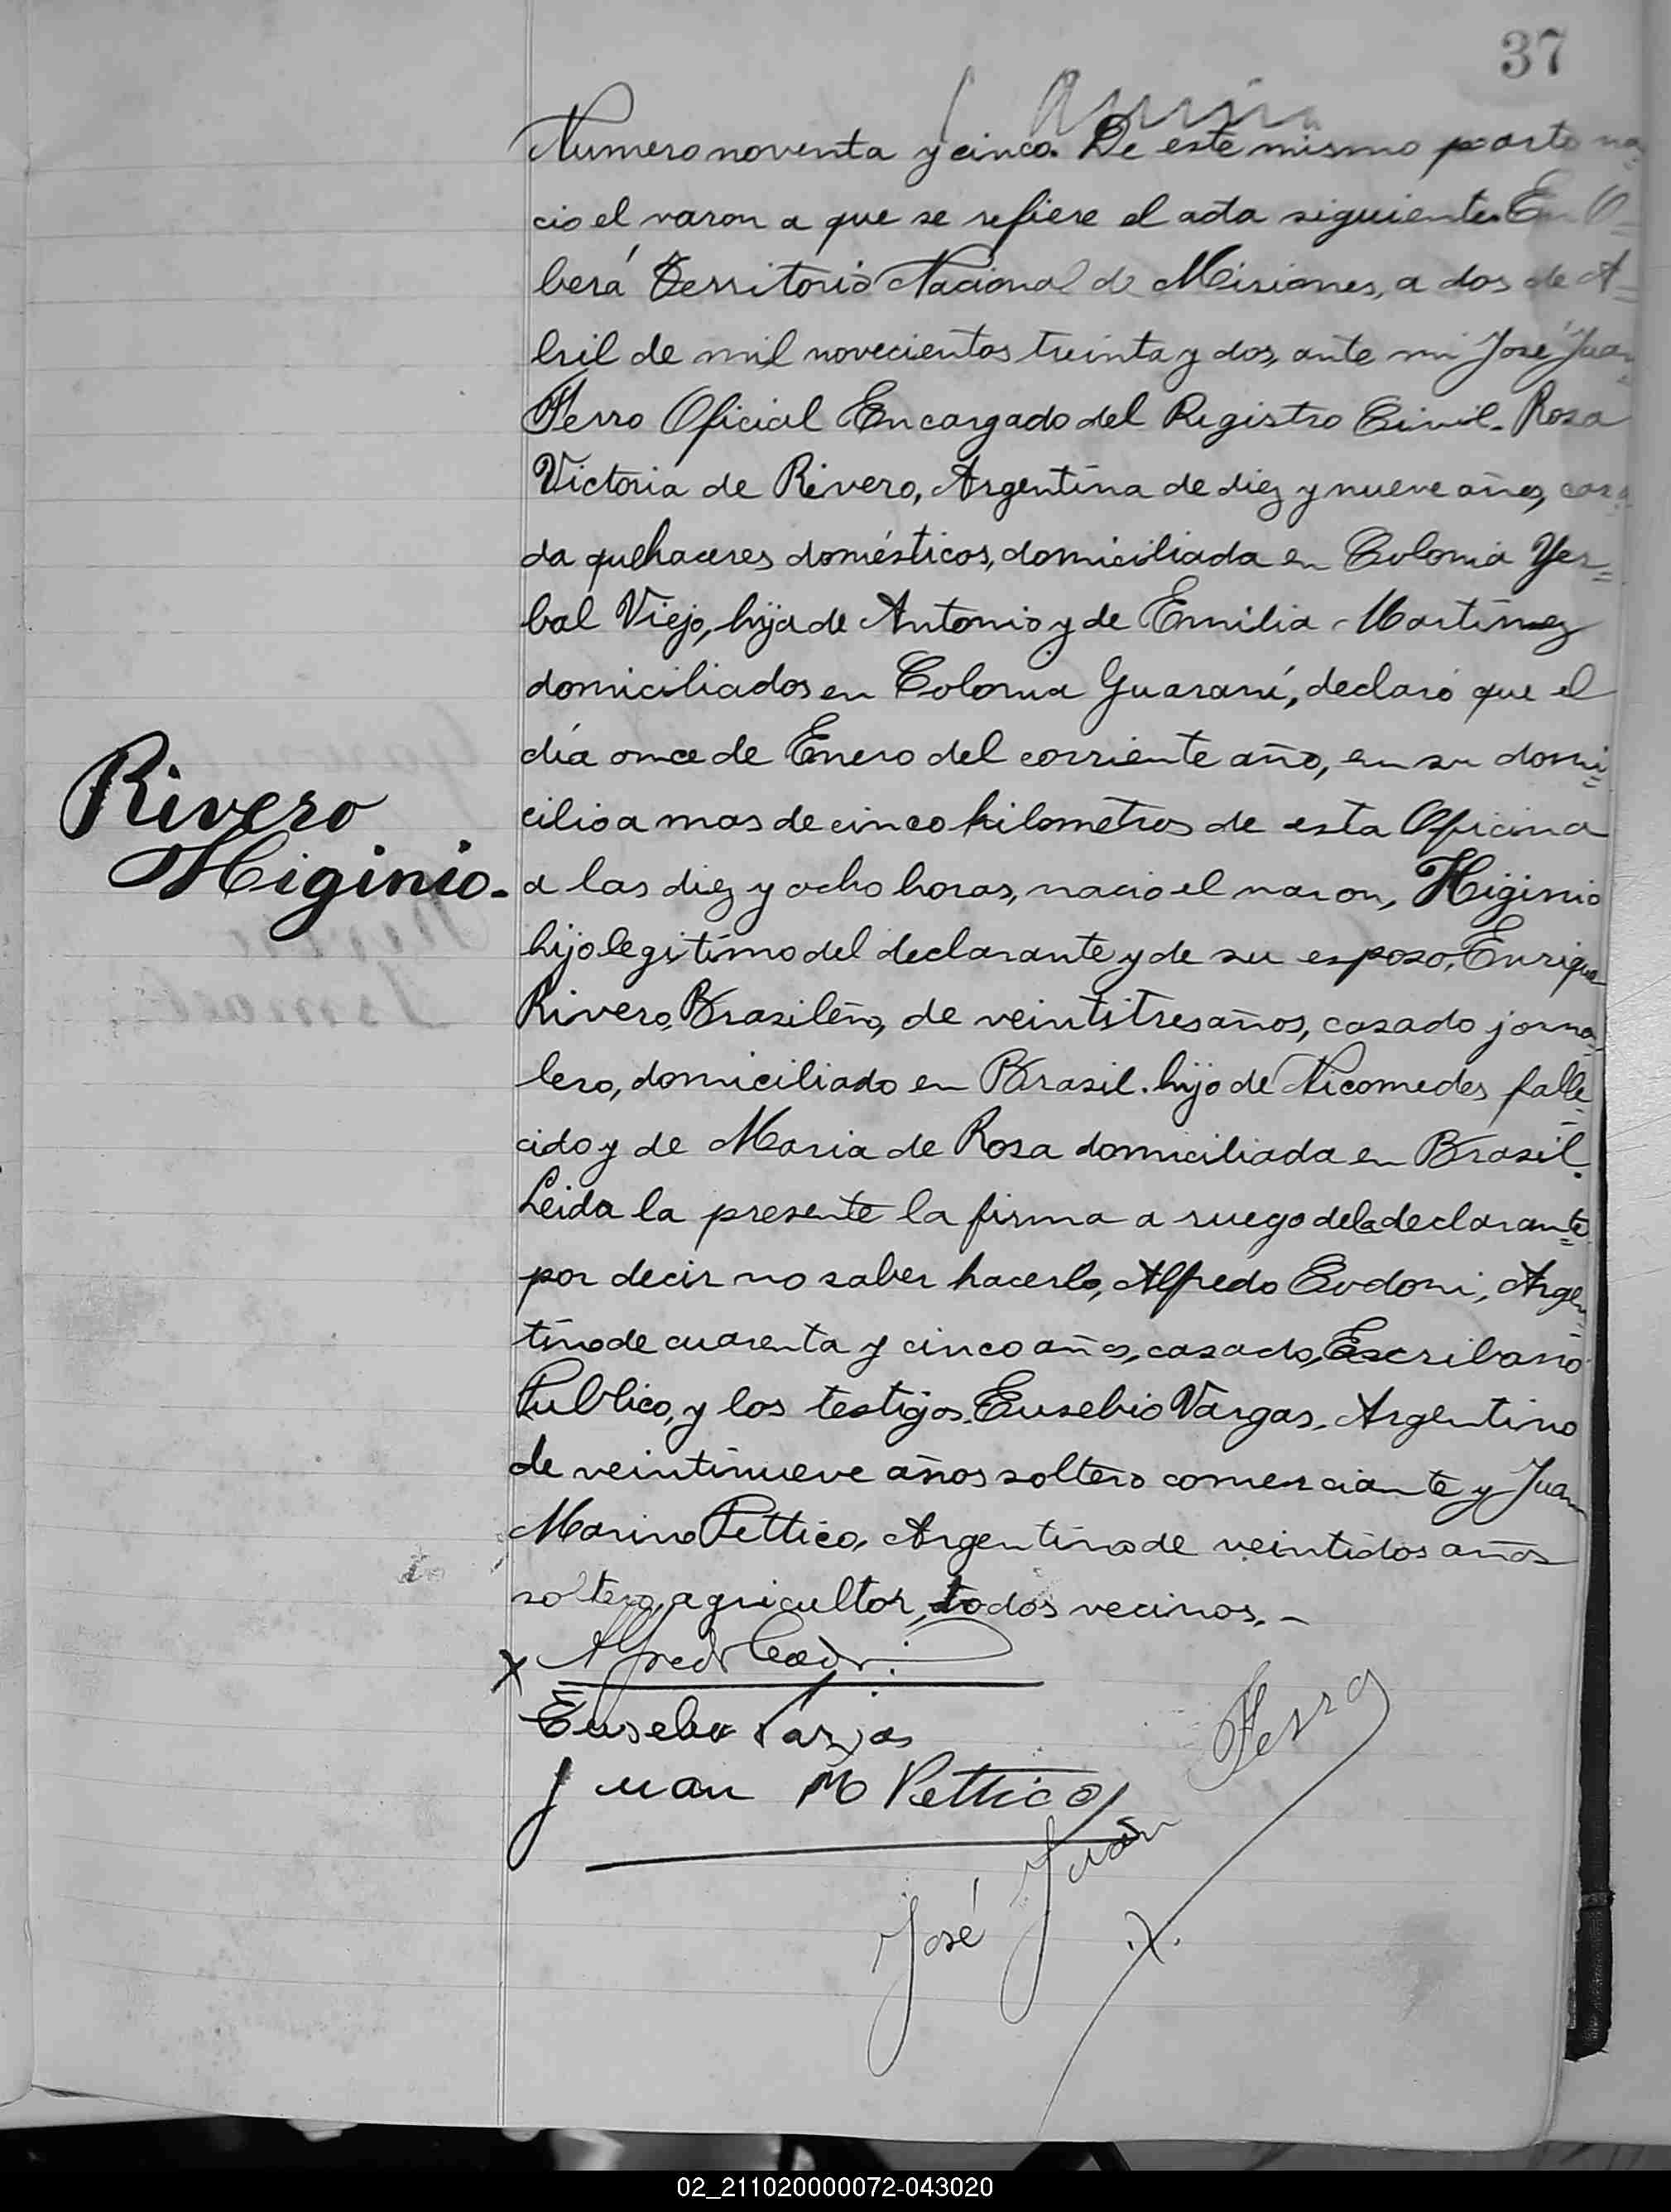 37
Numero noventa y cinco. De este mismo parto na=
cio el varon a que se refiere el acta siguiente. En O=
berá Territorio Nacional de Misiones, a dos de A=
bril de mil novecientos treinta y dos, ante mi José Juan
Ferro Oficial Encargado del Registro Civil. Rosa
Victoria de Rivero, Argentina de diez y nueve años, casa=
da quehaceres domésticos, domiciliada en Colonia Yer=
bal Viejo, hija de Antonio y de Emilia Martinez
domiciliados en Colonia Guaraní, declaró que el
día once de Enero del corriente año, en su domi=
cilio a mas de cinco kilometros de esta Oficina
Rivero
Higinio.
a las diez y ocho horas, nacio el varon, Higinio
hijo legitimo del declarante y de su esposo, Enrique
Rivero, Brasileño, de veintitres años, casado jorna=
lero, domiciliado en Brasil. hijo de Nicomedes falle=
cido y de Maria de Rosa domiciliada en Brasil.
Leida la presente la firma a ruego de la declarante
por decir no saber hacerlo, Alfredo Codoni, Argen=
tino de cuarenta y cinco años, casado, Escribano
Publico, y los testigos. Eusebio Vargas. Argentino
de veintinueve años soltero comerciante y Juan
Marino Pettico, Argentino de veintidos años
soltero, agricultor, todos vecinos. -
x
Eusebio Vargas
Juan M Pettico
José Juan Ferro
02_211020000072-043020